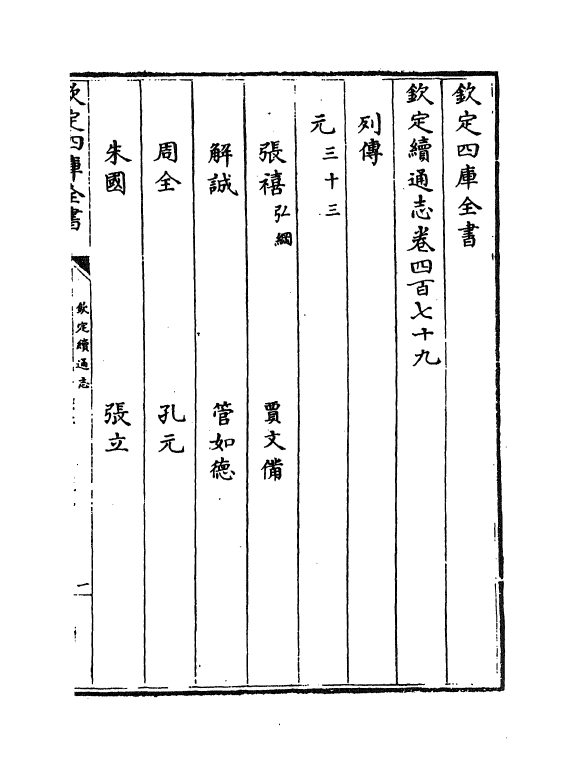 欽定四庫全書
欽定續通志卷四百七十九
列傳
元三十三
張禧弘綱　賈文備
解誠　管如德
周全　孔元
朱國　張立
欽定四庫全書
欽定續通志
一